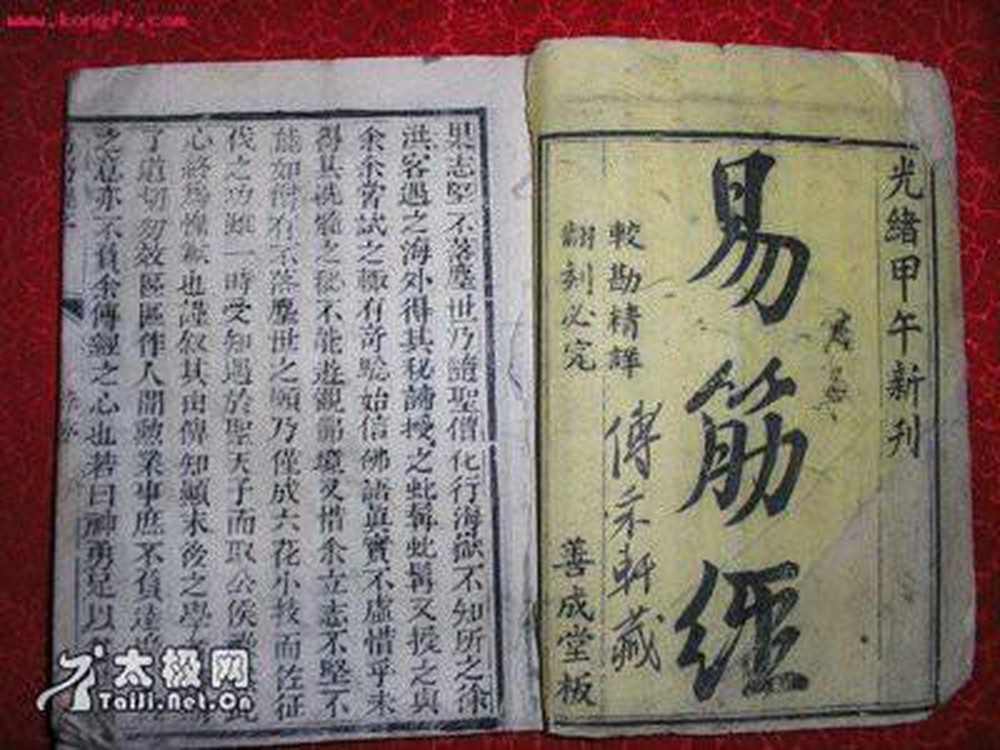 www.kongfz.com
光緒甲午新刊
易筋經
較勘精詳
翻刻必究
善成堂板
果志堅不落塵世乃隨聖僧化行海嶽不知所之徐
洪客遇之海外得其秘諦授之虬髯虬髯又授之與
余余嘗試之輒有奇驗始信佛語真實不虛惜乎未
得其洗髓之秘不能遊觀佛境又惜余立志不堅不
能如僧有不落塵世之願乃僅成六花小技而佐征
伐之功雖一時受知遇於聖天子而取公侯
心終為愧歉也謹叙其由俾知顛末後之學
了道切勿效區區作人間勲業事庶不負達摩
之意亦不負余傳經之心也若曰神勇足以
太极网
Taiji.Net.Cn